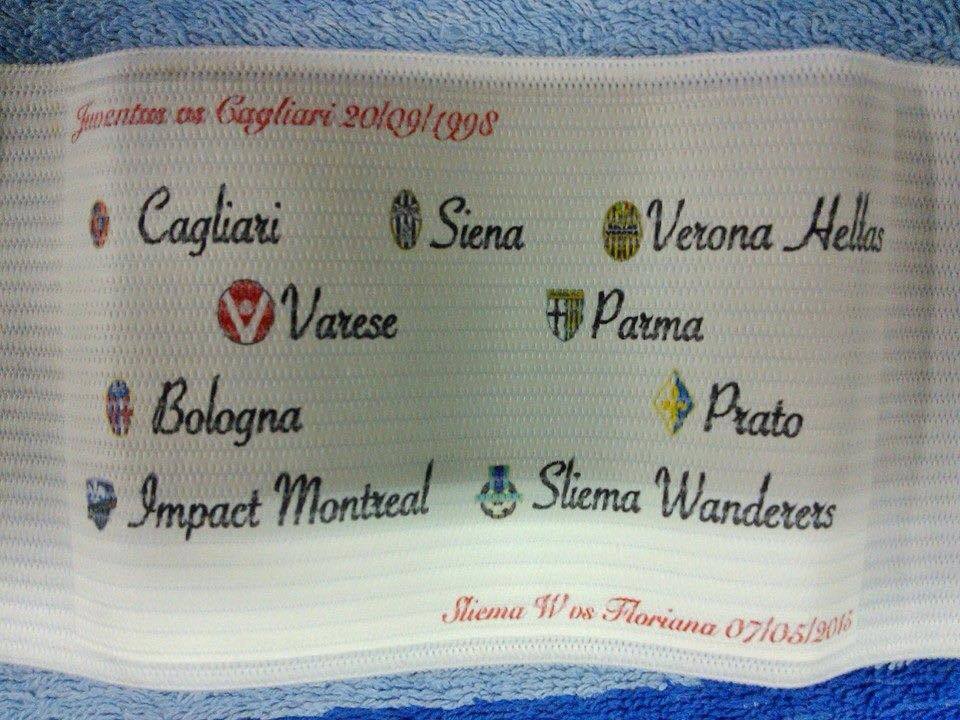 Juventus vs Cagliari 20/09/1998
Cagliari Siena Verona Hellas
Varese Parma
Bologna Prato
Impact Montreal Sliema Wanderers
Sliema W vs Floriana 07/05/2015